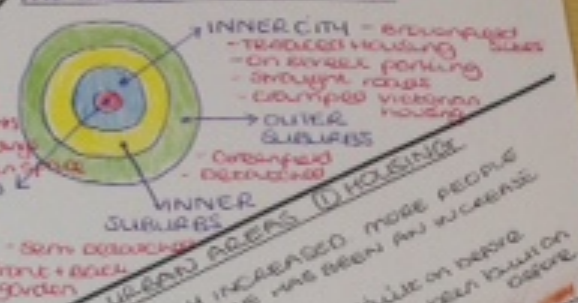 INNER CITY - Brownfield sites
- Terraced Housing
- on street parking
- straight roads
- cramped victorian housing
OUTER SUBURBS
- Greenfield
- Detached
INNER SUBURBS
- semi detached
front + back
garden
URBAN AREAS ① HOUSING
INCREASED. MORE PEOPLE
HAS BEEN AN INCREASE
built on before
been built on
before